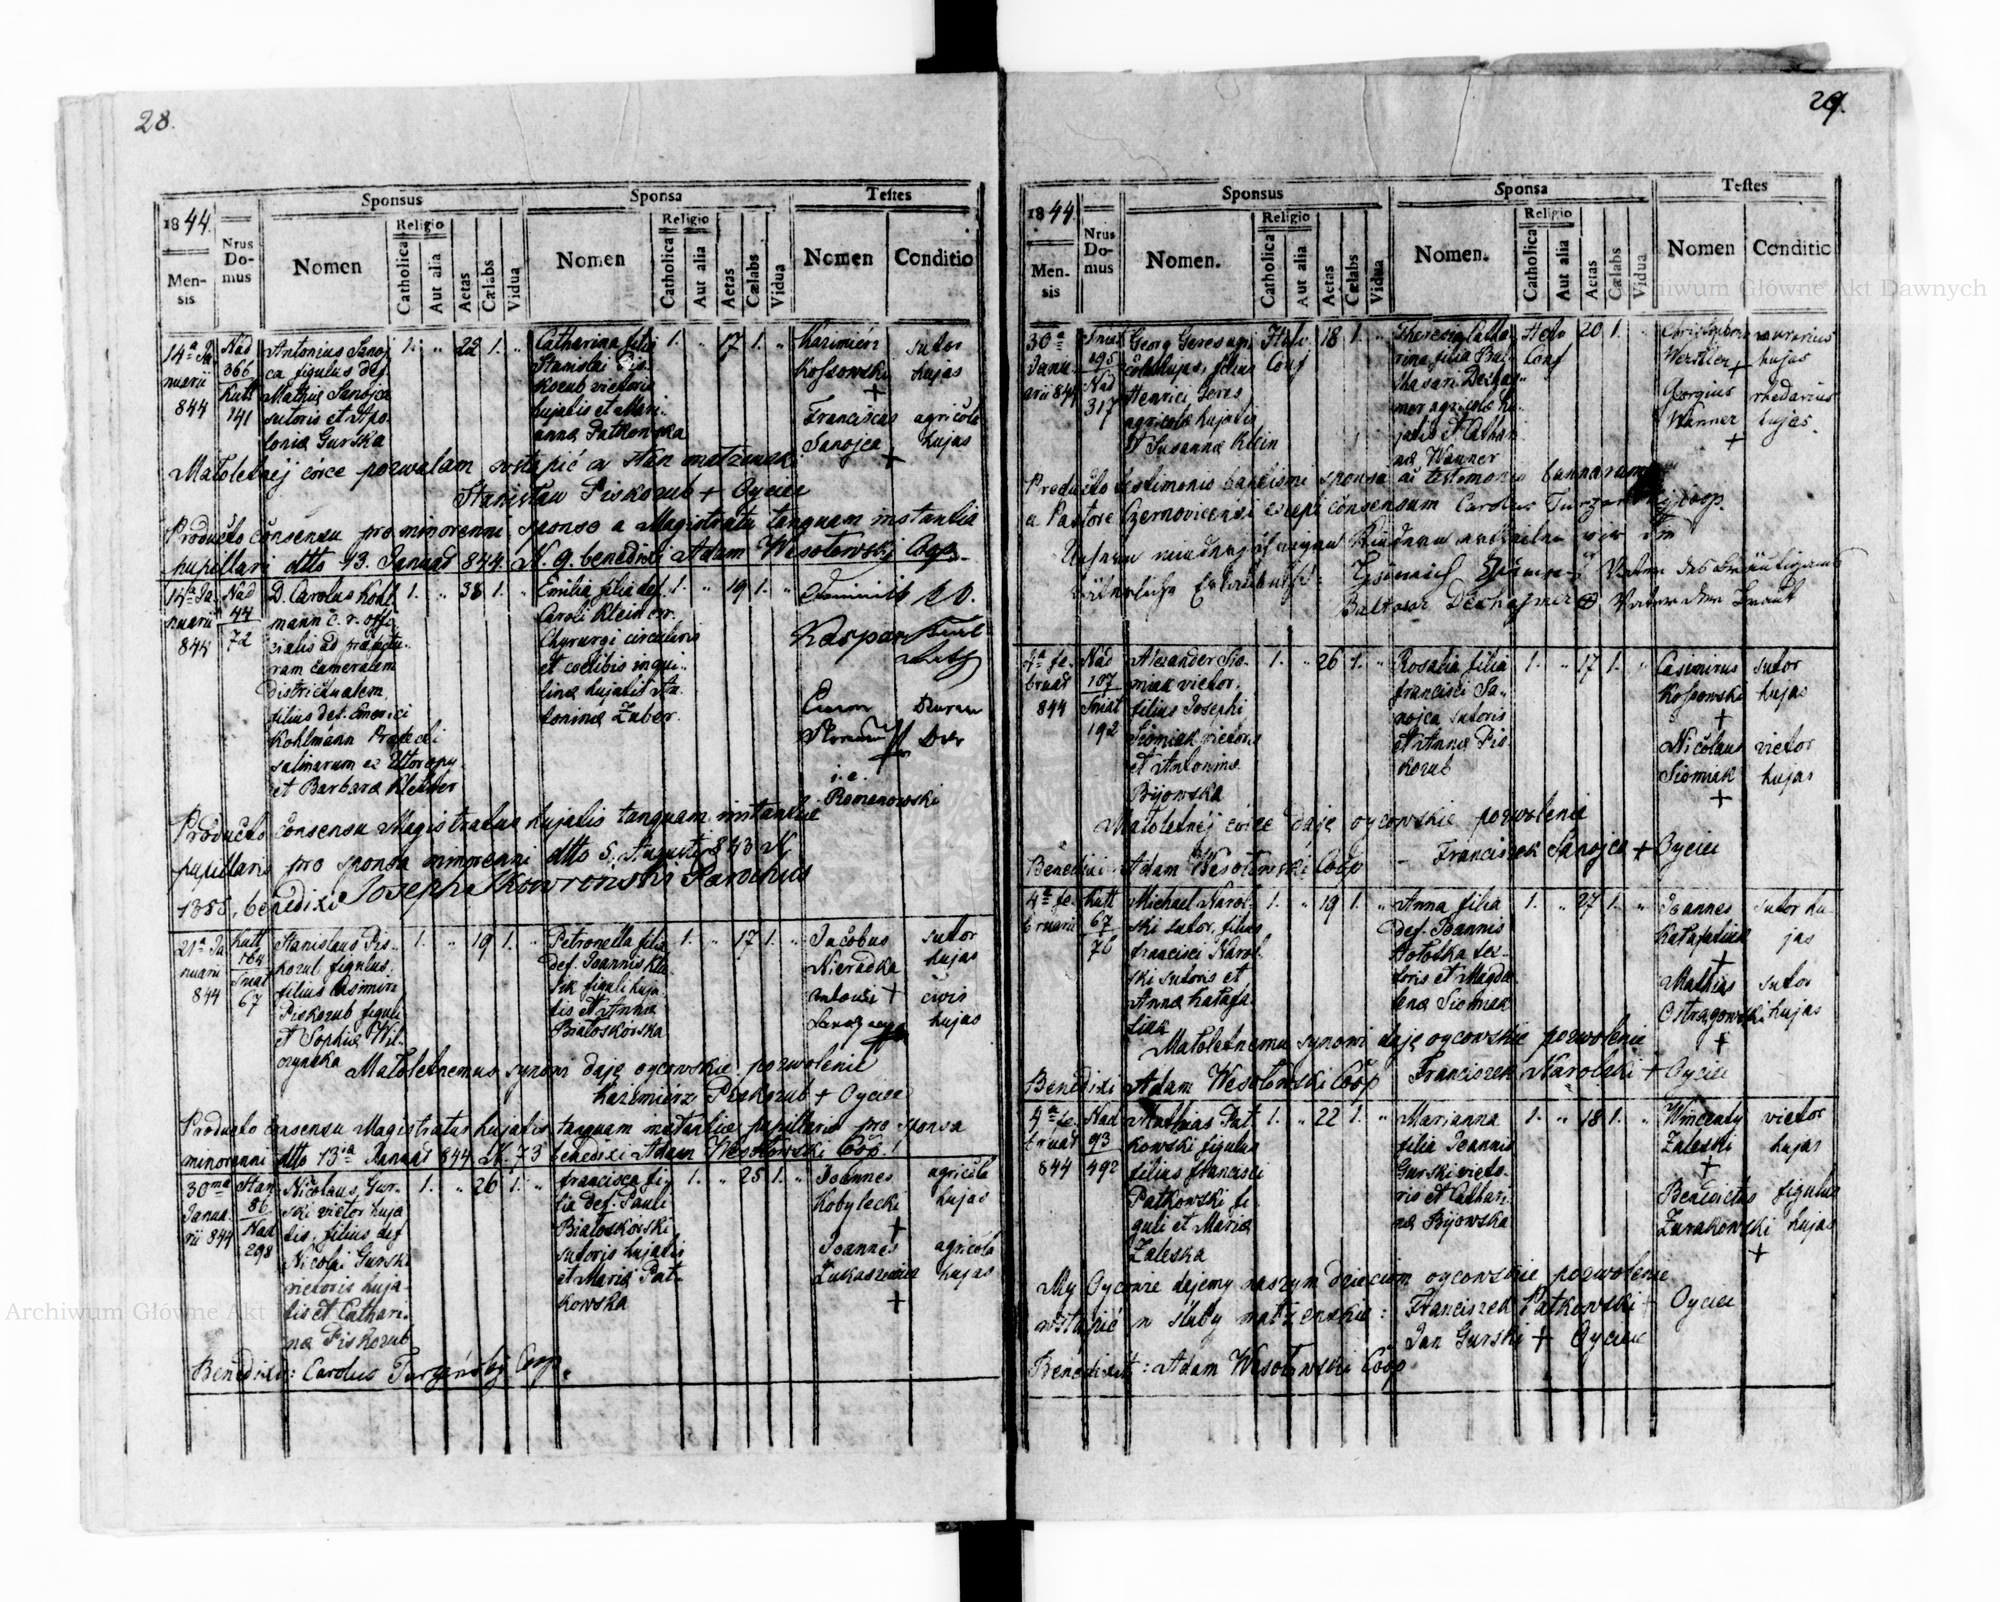 28.
Sponsus
Sponsa
Testes
1844.
Mensis
Nrus Domus
Nomen
Religio
Catholica
Aut alia
Aetas
Cælabs
Vidua
Nomen
Religio
Catholica
Aut alia
Aetas
Cælabs
Vidua
Nomen
Conditio
14ª Ja-
nuarii
844
Nad
366
Kutt
141
Antonius Sanoj
ca figulus def
Mathiæ Sanojca
sutoris et Apo
loniæ Gurska
1. " 22 1. "
Catharina filia
Stanislai Pis-
kozub victoris
hujatis et Mari-
annæ Patkowska
1. " 17 1. "
Kazimierz
Kossowski
+
Franciscus
Sanojca
+
sutor
hujas
agricola
hujas
Małoletnej córce pozwalam wstąpić w stan małżenski
Stanisław Piskozub + Oyciec
Producto consensu pro minorenni sponso a Magistratu tanquam instantia
pupillari dtto 13. Januar 844. N. 9. benedixi Adam Wesołowski Coop.
14ª Ja-
nuarii
844
Nad
44
72
D. Carolus Kohl
mann c. r. offi
cialis ad præfectu-
ram cameralem
districtualem,
filius def. Emerici
Kohlmann
salinarum ex Utoropy
et Barbara Kleiber
1. " 38 1. "
Emilia filia def.
Caroli Klein c.r.
Chyrurgi circularis
et coelibis inqui-
linæ hujatis An-
toninæ Zuber.
1. " 19 1. "
Kaspar
i.e.
Romanowski
Producto consensu Magistratus hujatis tanquam instantiæ
pupillaris pro sponsa minorenni dtto 5. Augusti 843 N.
1355, benedixi Joseph Skowronski Parochus
21ª Ja-
nuarii
844
Kutt
164
Sniat
67
Stanislaus Pis-
kozub figulus,
filius Casimiri
Piskozub figuli
et Sophiæ Wil-
czynska
1. " 19 1. "
Petronella filia
def. Joannis Kla
sik figuli huja-
tis et Anna
Białoskórska
1. " 17 1. "
Jacobus
Nieradka
Antoni +
sutor
hujas
civis
hujas
Małoletnemu synowi daję oycowskie pozwolenie
Kazimierz Piskozub + Oyciec
Producto consensu Magistratus hujatis tanquam instantiæ pupillaris pro sponsa
minorenni dtto 13ia Januar 844 N. 73 benedixi Adam Wesołowski Coop.
30ma
Janua-
rii 844
Stan
86
Nad
298
Nicolaus Gur-
ski victor huja
tis, filius def
Nicolai Gurski
victoris huja-
tis et Cathari-
næ Piskozub
1. " 26 1. "
Francisca fi-
lia def. Pauli
Białoskórski
sutoris hujatis
et Mariæ Pat-
kowska
1. " 25 1. "
Joannes
Kobylecki
+
Joannes
Łukasiewicz
+
agricola
hujas
agricola
hujas
Benedixi: Carolus Coop.
29.
Sponsus
Sponsa
Testes
1844.
Mensis
Nrus Domus
Nomen.
Religio
Catholica
Aut alia
Aetas
Cælabs
Vidua
Nomen.
Religio
Catholica
Aut alia
Aetas
Cælabs
Vidua
Nomen
Conditio
30ª
Janu-
arii 844
Sniat
195
Nad
317
Georg Geres agri
cola hujas, filius
Henrici Geres
agricolæ hujatis
et Susannæ Klein
Helv. Conf 18 1. "
Theresia Catha
rina filia Bal-
thasari Dechas-
mer agricolæ hu-
jatis et Cathari
næ Wanner
Helv Conf 20 1. "
+
Georgius
Wanner
+
murarius
hujas
rhedarius
hujas.
Producto testimonio baptismi sponsa ac testimonio bannorum
a Pastore Czernovicensi excepi consensum Carolus Coop.
Unsern minderjährigen Kindern ertheilen wir die
väterliche Erlaubniß: Vater des Bräutigams
Baltasar Vater der Braut
4ª Fe-
bruar
844
Nad
107
Sniat
192
Alexander Sio-
miak victor,
filius Josephi
Siomiak victoris
et Antoninæ
Bijowska
1. " 26 1. "
Rosalia filia
Francisci Sa-
nojca sutoris
et Annæ Pis
kozub
1. " 17 1. "
Casimirus
Kossowski
+
Nicolaus
Siomiak
+
sutor
hujas
victor
hujas
Małoletnej córce daję oycowskie pozwolenie
Franciszek Sanojca + Oyciec
Benedixi Adam Wesołowski Coop
4ª Fe-
bruarii
Kutt
67
76
Michael Karol-
ski sutor, filius
Francisci Karol
ski sutoris et
Annæ Katafa-
liak
1. " 19 1. "
Anna filia
def. Joannis
Hołotka tex-
toris et Magda
lena Siomiak
1. " 27 1. "
Joannes
Katafaliak
+
Mathias
Ostragowski
+
sutor hu-
jas
sutor
hujas
Małoletnemu synowi daję oycowskie pozwolenie
Franciszek Karolski + Oyciec
Benedixi Adam Wesołowski Coop
4ª Fe-
bruar
844
Nad
93
492
Mathias Pat
kowski figulus
filius Francisci
Patkowski fi-
guli et Mariæ
Zaleska
1. " 22 1. "
Marianna
filia Joannis
Gurski victo-
ris et Cathari-
næ Bijowska
1. " 18 1. "
Wincenty
Zaleski
+
Benedictus
Zurakowski
+
victor
hujas
figulus
hujas
My Oycowie dajemy naszym dzieciom oycowskie pozwolenie
wstąpić w śluby małżenskie: Franciszek Patkowski + Oyciec
Jan Gurski + Oyciec
Benedixit: Adam Wesołowski Coop
Archiwum Główne Akt Dawnych
Archiwum Główne Akt